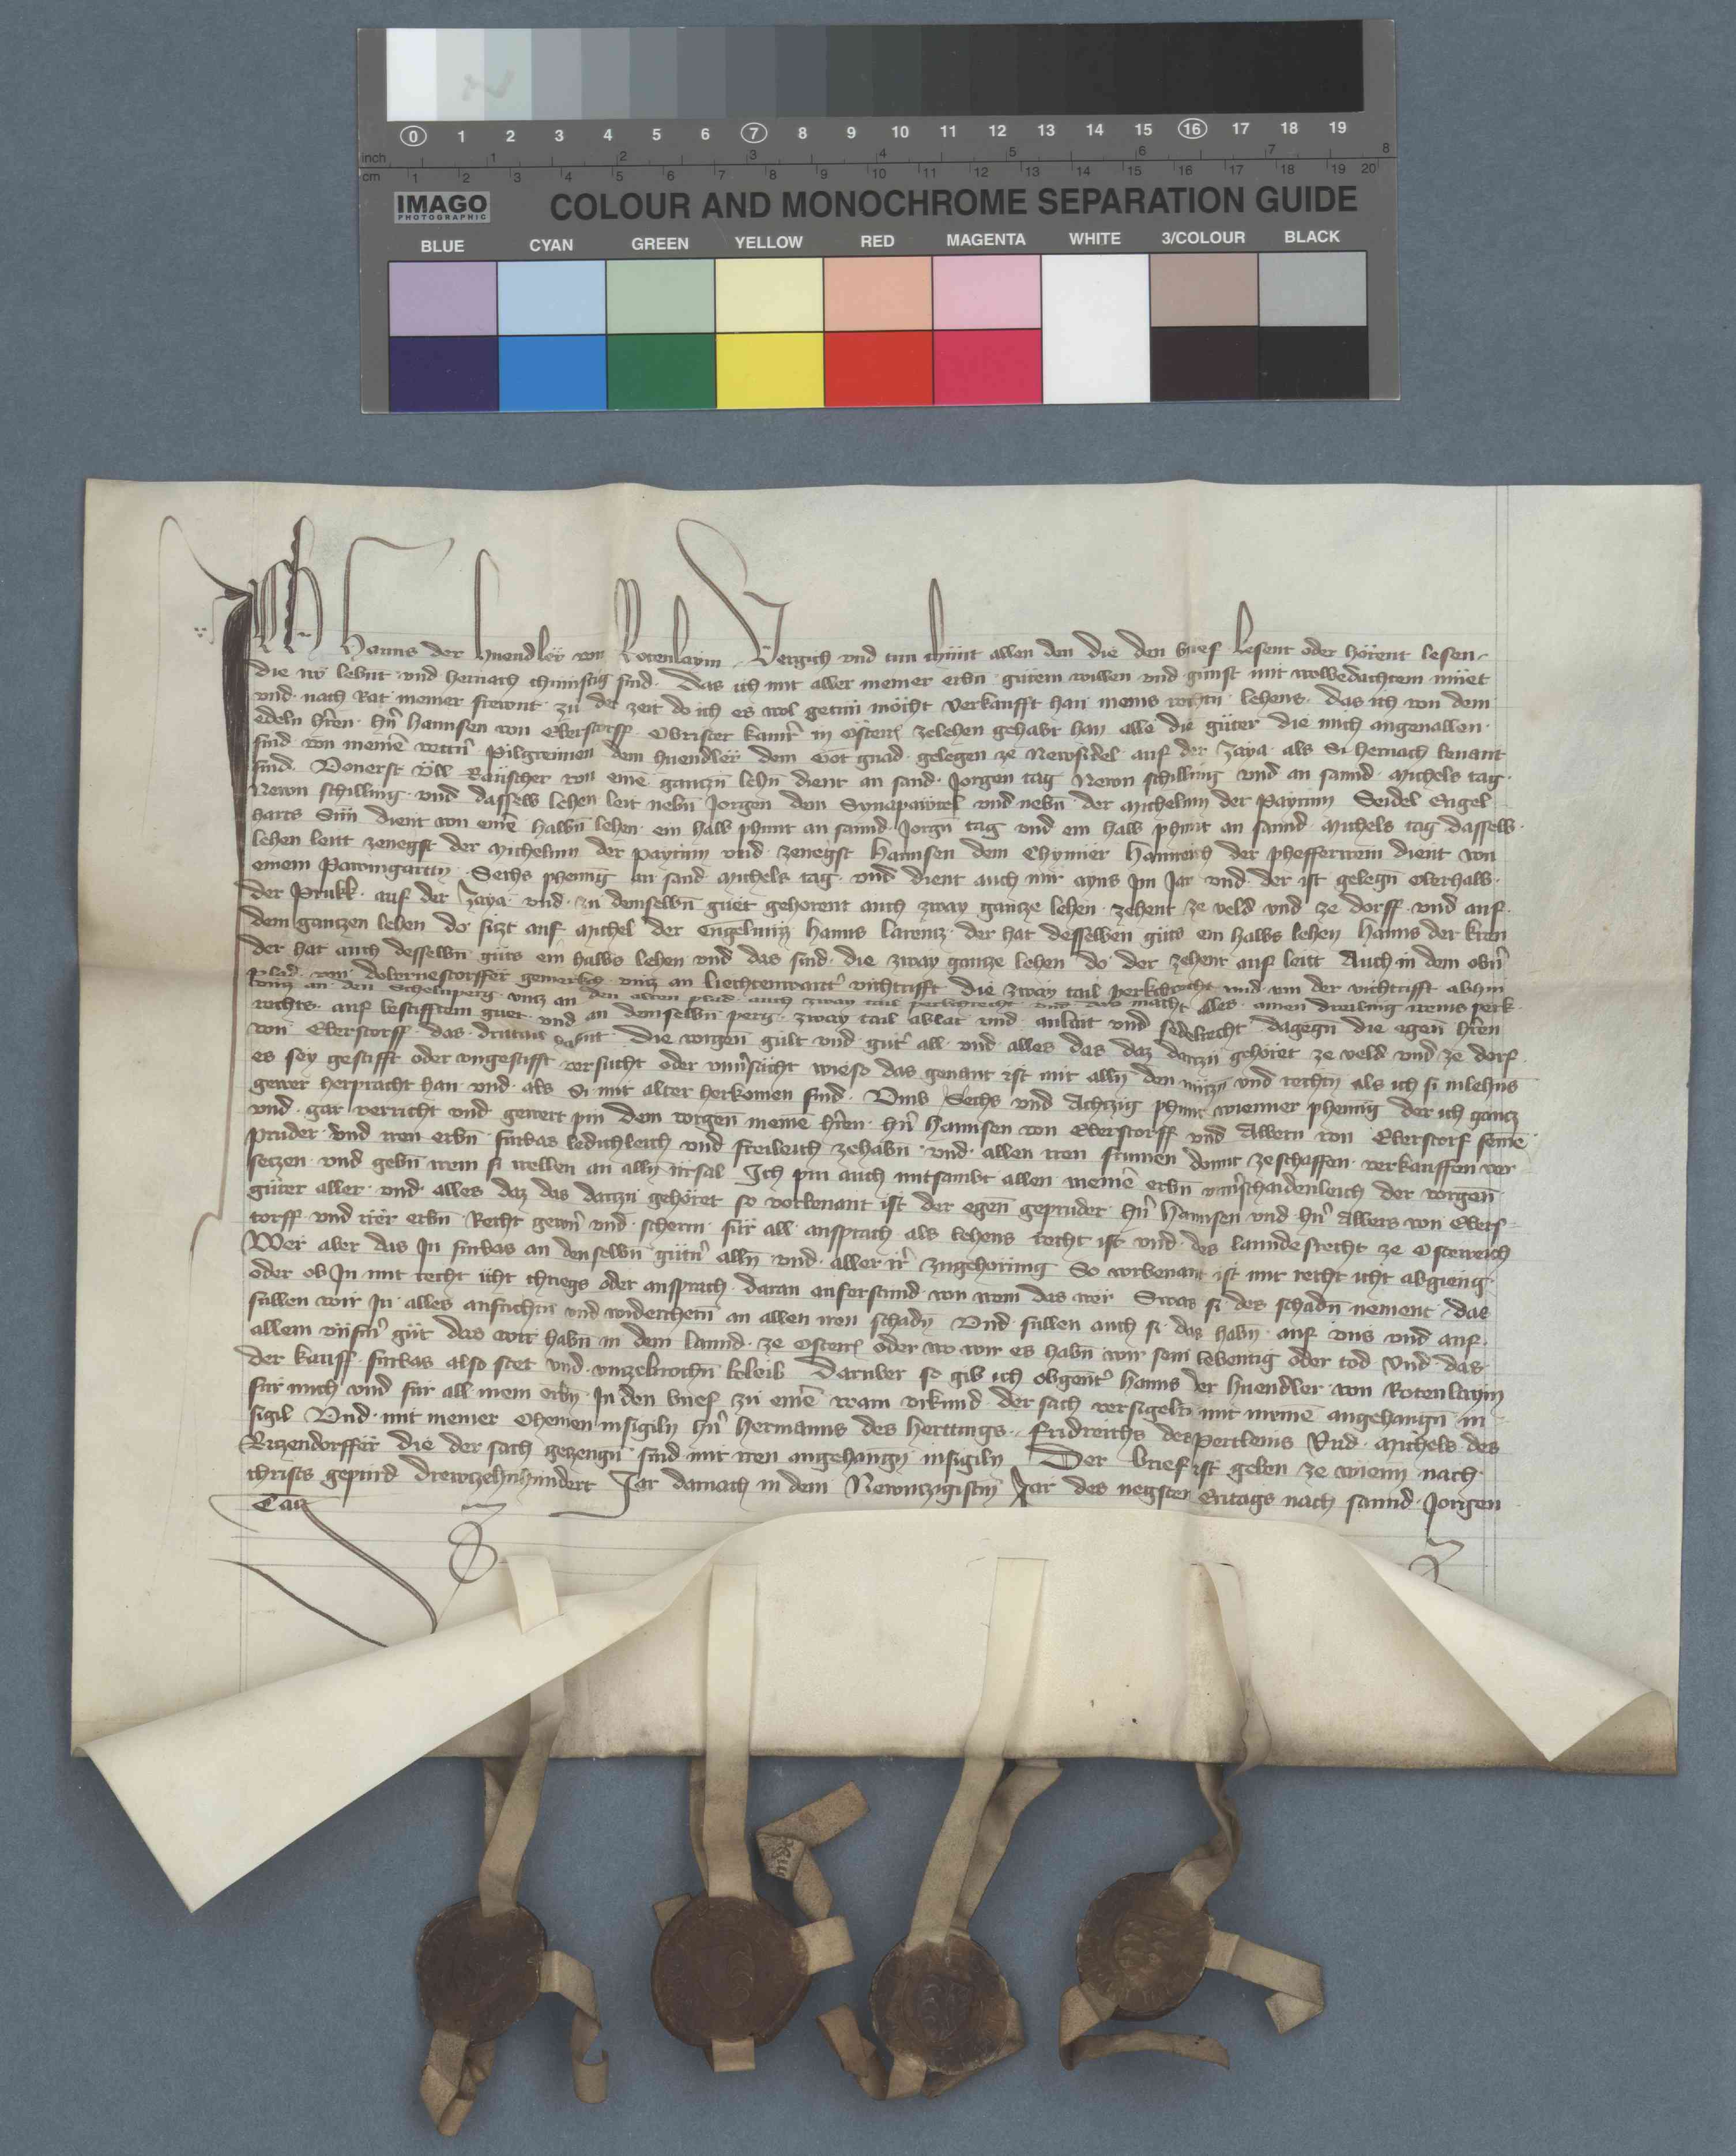 0 1 2 3 4 5 6 7 8 9 10 11 12 13 14 15 16 17 18 19
inch 1 2 3 4 5 6 7 8
cm 1 2 3 4 5 6 7 8 9 10 11 12 13 14 15 16 17 18 19 20
IMAGO PHOTOGRAPHIC
COLOUR AND MONOCHROME SEPARATION GUIDE
BLUE CYAN GREEN YELLOW RED MAGENTA WHITE 3/COLOUR BLACK
Ich Hanns der Huendler von Rotenlaym Vergich und tun chunt allen den die den brief Lesent oder hörent lesen
die nv lebnt und hernach chunftig sind Das ich mit aller meiner erbn gutem willen und gunst mit wolbedachtem müet
und nach Rat meiner frewnt zu der zeit do ich es wol getun möcht verkaufft han meins rechtn lehens das ich von dem
edeln hren hn Hannsen von Eberstorff Obrister kamr in Osterr zelehen gehabt han alle die güter die mich angeuallen
sind von meinē vettrn Pilgreimen dem huendler dem Got gnad gelegen ze Newsidel auf der Zaya als Si hernach benant
sind Von erst Üll Rauscher von einē ganczn lehn dient an sand Jorgen tag Newn schilling und an sannd Michels tag
Newn schilling und dasselb lehen leit nebn Jorgen dem Synapawtel und nebn der Michelinn der Payrinn Seidel Engel
harts Sün dient von einē halbn lehen ein halb phunt an sannd Jorgn tag und ein halb phunt an sannd Michels tag dasselb
lehen leitt zenegst der Michelinn der Payrinn und zenegst Hannsen dem Chymer Hannreich der phefferwein dient von
einem Pawmgartn Sechs phennig an sand Michels tag und dient auch nür ayns im Jar und der ist gelegn oberhalb
der Prukk auf der Zaya und zu demselbn guet gehorent auch zway gancze lehen zehent ze veld und ze dorff und auf
dem ganczen lehen do siczt auf Michel der Engelning Hanns Larencz der hat desselben güts ein halbs lehen Hanns der kren
der hat auch desselbn güts ein halbs lehen und das sind die zway gancze lehen do der zehent auf leitt Auch in dem obn
veld von Dobernestorffer gemerkch uncz an Liechtenwartr vichtrifft die zway tail perkchrecht und von der vichtrifft abhin
uncz an den Schelnperg uncz an den alten phad auch zway tail perkchrecht und das macht alles ainen dreiling weins perk
rechts auf bestifftem guet und an demselbn perg zway tail ablat und anlait und sedelrecht dagegn die egen hren
von Eberstorff das drittail habnt die vorgen gült und gütr all und alles das daz darczu gehöret ze veld und ze dorf
es sey gestifft oder ungestifft versucht oder unuersücht wieso das genant ist mit alln den nüczn und rechtn als ich si in lehns
gewer herpracht han und als Si mit alter herkomen sind Umb Sechs und Achczig phunt wienner phennig der ich gancz
und gar verricht und gewert pin dem vorgen meinē hren hn Hannsen von Eberstorff und Albern von Eberstorf seinē
pruder und iren erbn furbas ledichleich und freileich zehabn und allen iren frumen domit zeschaffen verkauffen ver
seczen und gebn wem si wellen an alln irrsal Ich pin auch mitsambt allen meinē erbn unuerschaidenleich der vorgen
güter aller und alles daz das darczu gehöret so vorbenant ist der egen gepruder hn Hannsen und hn Albers von Ebers
torff und irer erbn Recht gewer und scherm für all ansprach als lehens recht ist und des lanndesrecht ze Osterreich
Wer aber das In furbas an denselbn gütern alln und aller ir zugehorung So vorbenant ist mit recht icht abgieng
oder ob In mit recht icht chriegs oder ansprach daran auferstund von wem das wer Swas si des schadn nement das
sullen wir In alles ausrichtn und widercheren an allen iren schadn Und sullen auch si daz habn auf uns und auf
allem unserm güt das wir habn in dem lannd ze Osterr oder wo wir es habn wir sein lebentig oder tod Und das
der kauff furbas also stet und unzebrochn beleib Darüber so gib ich obgentr Hanns der Huendler von Rotenlaym
für mich und für all mein erbn In den brief zu einē waren urkund der sach versigeltn mit meinē angehangn in
sigil Und mit meiner Ohemen insigiln hn Hermanns des Herttings Fridreichs des Pertlens Und Michels des
Riczendorffer die der sach geczeugn sind mit iren angehangn insigiln Der brief ist geben ze wienn nach
christs gepurd drewczehnhundert Jar darnach in dem Newnczigistn Jar des negsten Eritags nach sannd Jorgen
Tag